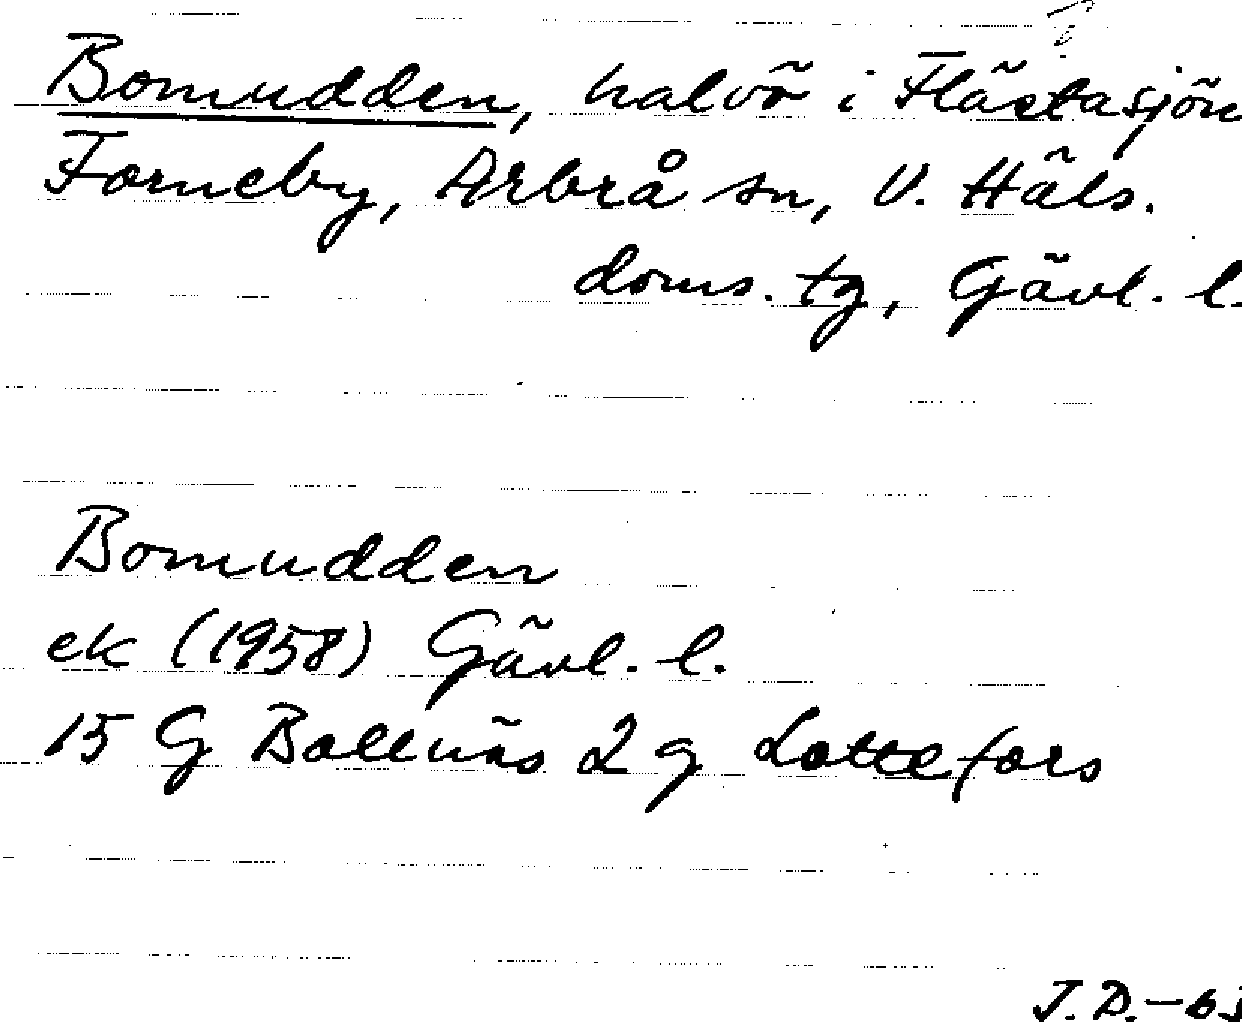 Bomudden, halvö i Flästasjön
Forneby, Arbrå sn, V. Häls.
doms. tg, Gävl. l.
Bomudden
ek (1958) Gävl. l.
15 G Bollnäs 2 g Lottefors
J.D.-